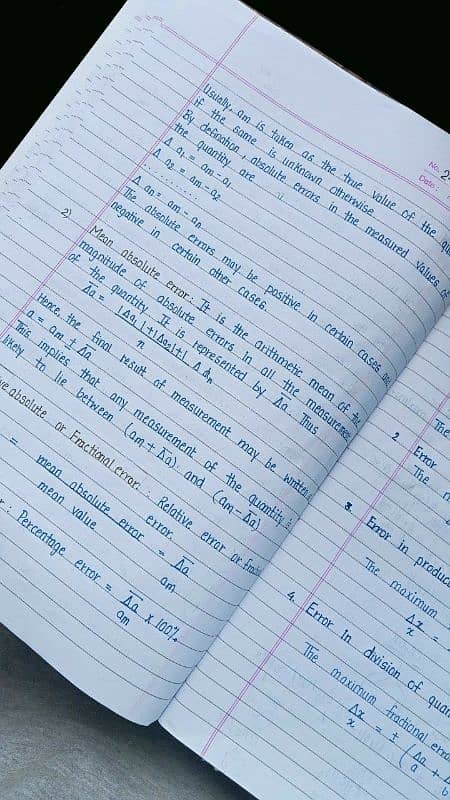 No.
Date:
Usually, am is taken as the true value of the
if the same is unknown otherwise.
By defination, absolute errors in the measured values of
the quantity are
Δ a₁ = am - a₁
Δ a₂ = am - a₂
........
Δ an = am - an
The absolute errors may be positive in certain cases
negative in certain other cases.
2) Mean absolute error: It is the arithmetic mean of the
magnitude of absolute errors in all the measurement
of the quantity. It is represented by Δ̅a̅. Thus
Δ̅a̅ = |Δa₁|+|Δa₂|+|
n
Hence, the final result of measurement may be written
a = am ± Δ̅a̅
This implies that any measurement of the quantity is
likely to lie between (am + Δ̅a̅) and (am - Δ̅a̅)
absolute or Fractional error: Relative error or
error.
= mean absolute error = Δ̅a̅
mean value am
: Percentage error = Δ̅a̅ x 100%
am
The
2. Error
The
3. Error in
The maximum
Δx =
x
4. Error In division of
The maximum fractional
Δx = ± (Δa +
x a b